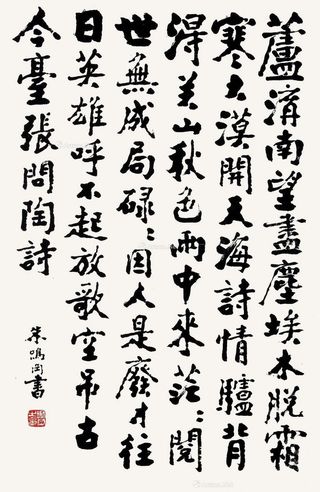 蘆溝南望盡塵埃木脫霜
寒大漠開天海詩情驢背
得关山秋色雨中來茫〻閱
世無成局碌〻因人是廢才往
日英雄呼不起放歌空吊古
今臺張問陶詩
朱鳴岡書